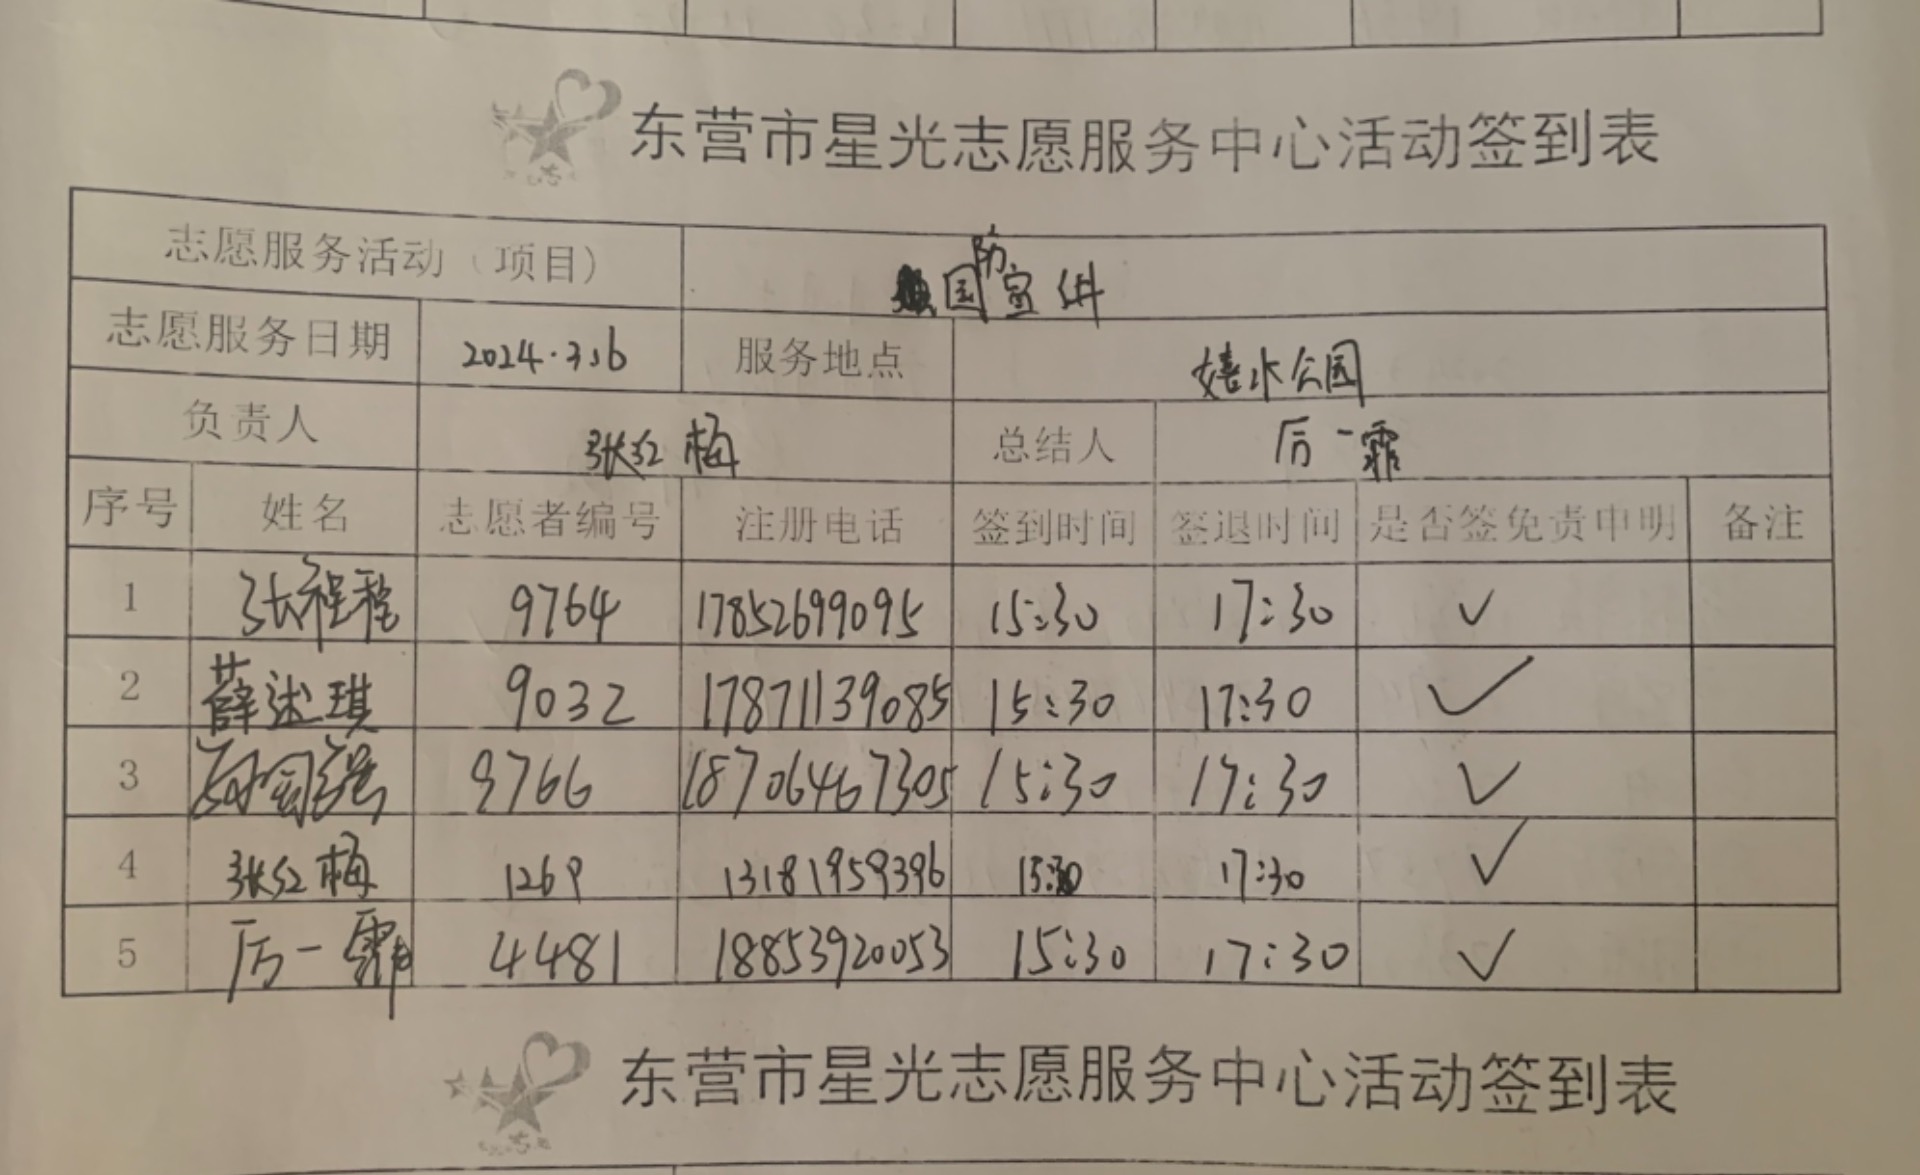 东营市星光志愿服务中心活动签到表
志愿服务活动（项目） 国防宣传
志愿服务日期 2024.3.16 服务地点 嬉水公园
负责人 张红梅 总结人 厉一霏
序号 姓名 志愿者编号 注册电话 签到时间 签退时间 是否签免责申明 备注
1 张程程 9764 17852699095 15:30 17:30 ✓
2 薛述琪 9032 17871139085 15:30 17:30 ✓
3 9766 18706467305 15:30 17:30 ✓
4 张红梅 1269 13181959396 15:30 17:30 ✓
5 厉一霏 4481 18853920053 15:30 17:30 ✓
东营市星光志愿服务中心活动签到表